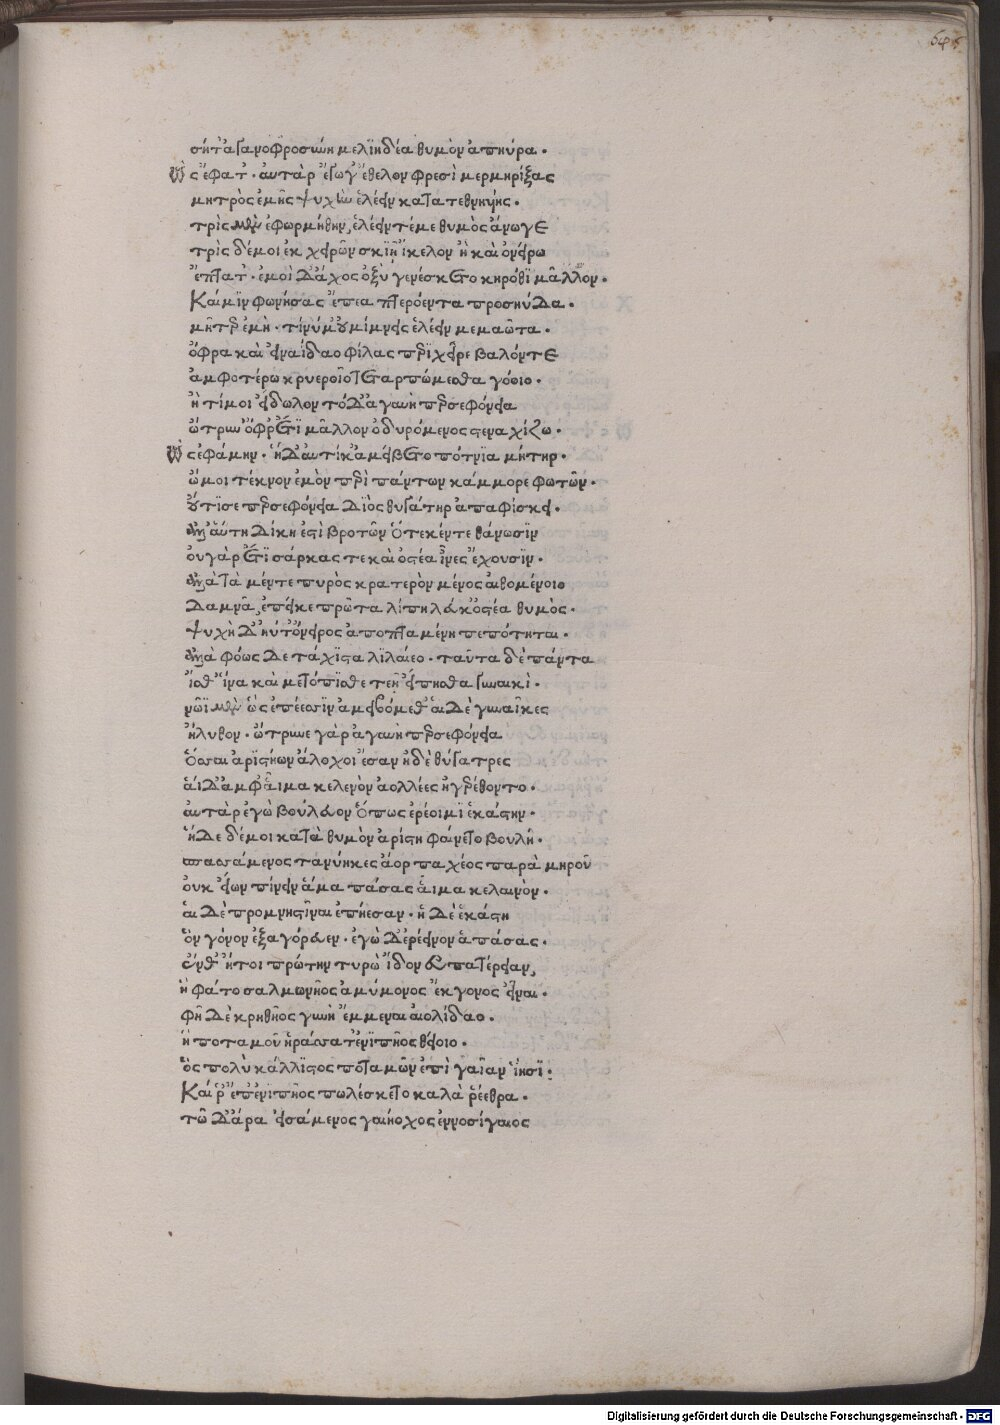 645
σήτ' ἀγανοφροσύνη μελιηδέα θυμὸν ἀπηύρα.
Ὣς ἔφατ'. αὐτὰρ ἔγωγ' ἔθελον φρεσὶ μερμηρίξας
μητρὸς ἐμῆς ψυχὴν ἑλέειν κατατεθνηκυίης.
τρὶς μὲν ἐφωρμήθην, ἑλέειν τέ με θυμὸς ἀνώγει
τρὶς δέ μοι ἐκ χειρῶν σκιῇ ἴκελον ἢ καὶ ὀνείρῳ
ἔπτατ'. ἐμοὶ δ' ἄχος ὀξὺ γενέσκετο κηρόθι μᾶλλον.
Καί μιν φωνήσας ἔπεα πτερόεντα προσηύδα.
μῆτερ ἐμὴ. τί νύ μ' οὐ μίμνεις ἑλέειν μεμαῶτα.
ὄφρα καὶ εἰν ἀΐδαο φίλας περὶ χεῖρε βαλόντε
ἀμφοτέρω κρυεροῖο τεταρπώμεσθα γόοιο.
ἤ τι μοι εἴδωλον τόδ' ἀγαυὴ περσεφόνεια
ὤτρυν' ὄφρ' ἔτι μᾶλλον ὀδυρόμενος στεναχίζω.
Ὣς ἐφάμην. ἡ δ' αὐτίκ' ἀμείβετο πότνια μήτηρ.
ὤμοι τέκνον ἐμὸν περὶ πάντων κάμμορε φωτῶν.
οὔτι σε περσεφόνεια διὸς θυγάτηρ ἀπαφίσκει.
ἀλλ' αὕτη δίκη ἐστὶ βροτῶν ὅτε κέν τε θάνωσιν
οὐ γὰρ ἔτι σάρκας τε καὶ ὀστέα ἶνες ἔχουσιν.
ἀλλὰ τὰ μέν τε πυρὸς κρατερὸν μένος αἰθομένοιο
δαμνᾷ, ἐπεί κε πρῶτα λίπῃ λεύκ' ὀστέα θυμὸς.
ψυχὴ δ' ἠύτ' ὄνειρος ἀποπταμένη πεπότηται.
ἀλλὰ φόως δὲ τάχιστα λιλαίεο. ταῦτα δὲ πάντα
ἴσθ' ἵνα καὶ μετόπισθε τεῇ εἴπησθα γυναικί.
νῶι μὲν ὣς ἐπέεσσιν ἀμειβόμεθ' αἱ δὲ γυναῖκες
ἤλυθον. ὤτρυνε γὰρ ἀγαυὴ περσεφόνεια
ὅσσαι ἀριστήων ἄλοχοι ἔσαν ἠδὲ θύγατρες
αἱ δ' ἀμφ' αἷμα κελενὸν ἀολλέες ἠγερέθοντο.
αὐτὰρ ἐγὼ βούλευον ὅπως ἐρέοιμι ἑκάστην.
ἥδε δέ μοι κατὰ θυμὸν ἀρίστη φαίνετο βουλή.
σπασσάμενος τανύηκες ἄορ παχέος παρὰ μηροῦ
οὐκ εἴων πίνειν ἅμα πάσας αἷμα κελαινὸν.
αἱ δὲ προμνηστῖναι ἐπήεσαν. ἡ δὲ ἑκάστη
ὃν γόνον ἐξαγόρευεν. ἐγὼ δ' ἐρέεινον ἁπάσας.
ἔνθ' ἤτοι πρώτην τυρὼ ἴδον εὐπατέρειαν,
ἣ φάτο σαλμωνῆος ἀμύμονος ἔκγονος εἶναι.
φῆ δὲ κρηθῆος γυνὴ ἔμμεναι αἰολίδαο.
ἣ ποταμοῦ ἠράσσατ' ἐνιπῆος θείοιο.
ὃς πολὺ κάλλιστος ποταμῶν ἐπὶ γαῖαν ἵησι.
Καί ῥ' ἐπ' ἐνιπῆος πωλέσκετο καλὰ ῥέεθρα.
τῷ δ' ἄρα εἰσάμενος γαιήοχος ἐννοσίγαιος
Digitalisierung gefördert durch die Deutsche Forschungsgemeinschaft - DFG